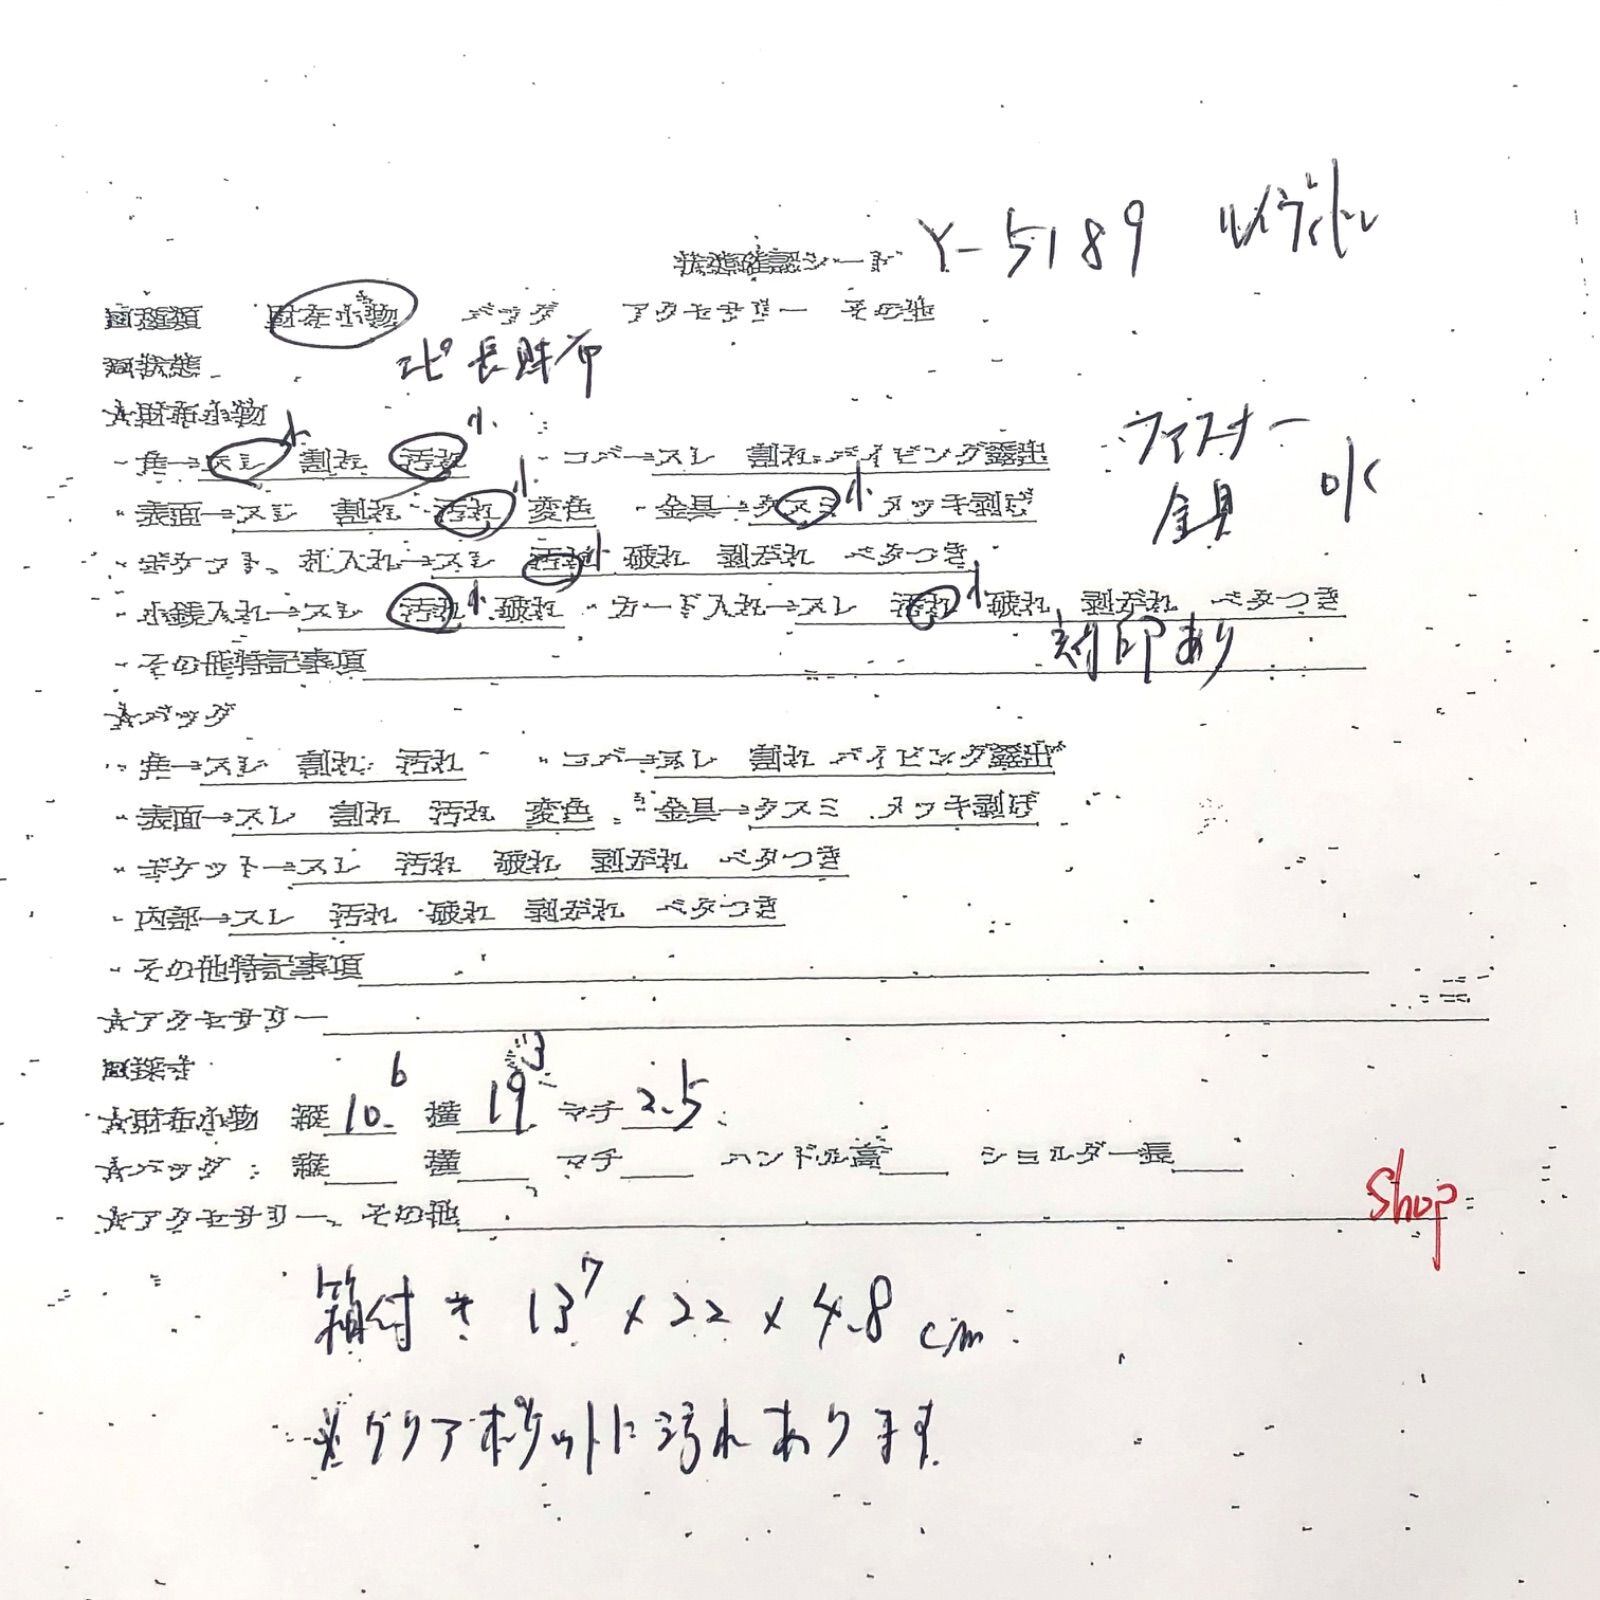 状態確認シート Y-5189 ルイヴィトン
■種類 財布小物 バッグ アクセサリー その他
■状態 エピ 長財布
☆財布小物
・角→スレ 小 割れ 汚れ 小 ・コバ→スレ 割れ パイピング露出 ファスナー
・表面→スレ 割れ 汚れ 小 変色 ・金具→クスミ 小 メッキ剥げ 金具 OK
・ポケット、札入れ→スレ 汚れ 小 破れ 剥がれ ベタつき
・小銭入れ→スレ 汚れ 小 破れ ・カード入れ→スレ 汚れ 小 破れ 剥がれ ベタつき
・その他特記事項 刻印あり
☆バッグ
・角→スレ 割れ 汚れ ・コバ→スレ 割れ パイピング露出
・表面→スレ 割れ 汚れ 変色 ・金具→クスミ メッキ剥げ
・ポケット→スレ 汚れ 破れ 剥がれ ベタつき
・内部→スレ 汚れ 破れ 剥がれ ベタつき
・その他特記事項
☆アクセサリー
■採寸
☆財布小物 縦 10.6 横 19.3 マチ 2.5
☆バッグ 縦 横 マチ ハンドル高 ショルダー長
☆アクセサリー、その他 Shop
箱付き 13.7 x 22 x 4.8 cm
※クリアポケットに汚れあります